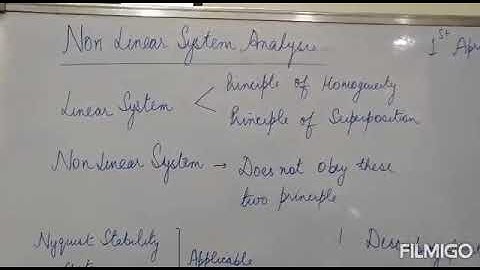 Non Linear System Analysis
1st Apr
Linear System
Principle of Homogeneity
Principle of Superposition
Non Linear System → Does not obey these
two principle
Nyquist Stability
Applicable
1
FILMIGO